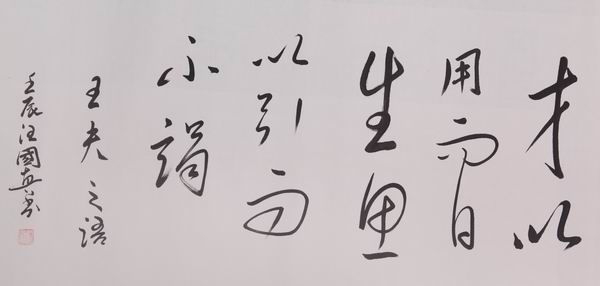 才以
用而日
生思
以引而
不竭
王夫之语
壬辰汪國真書